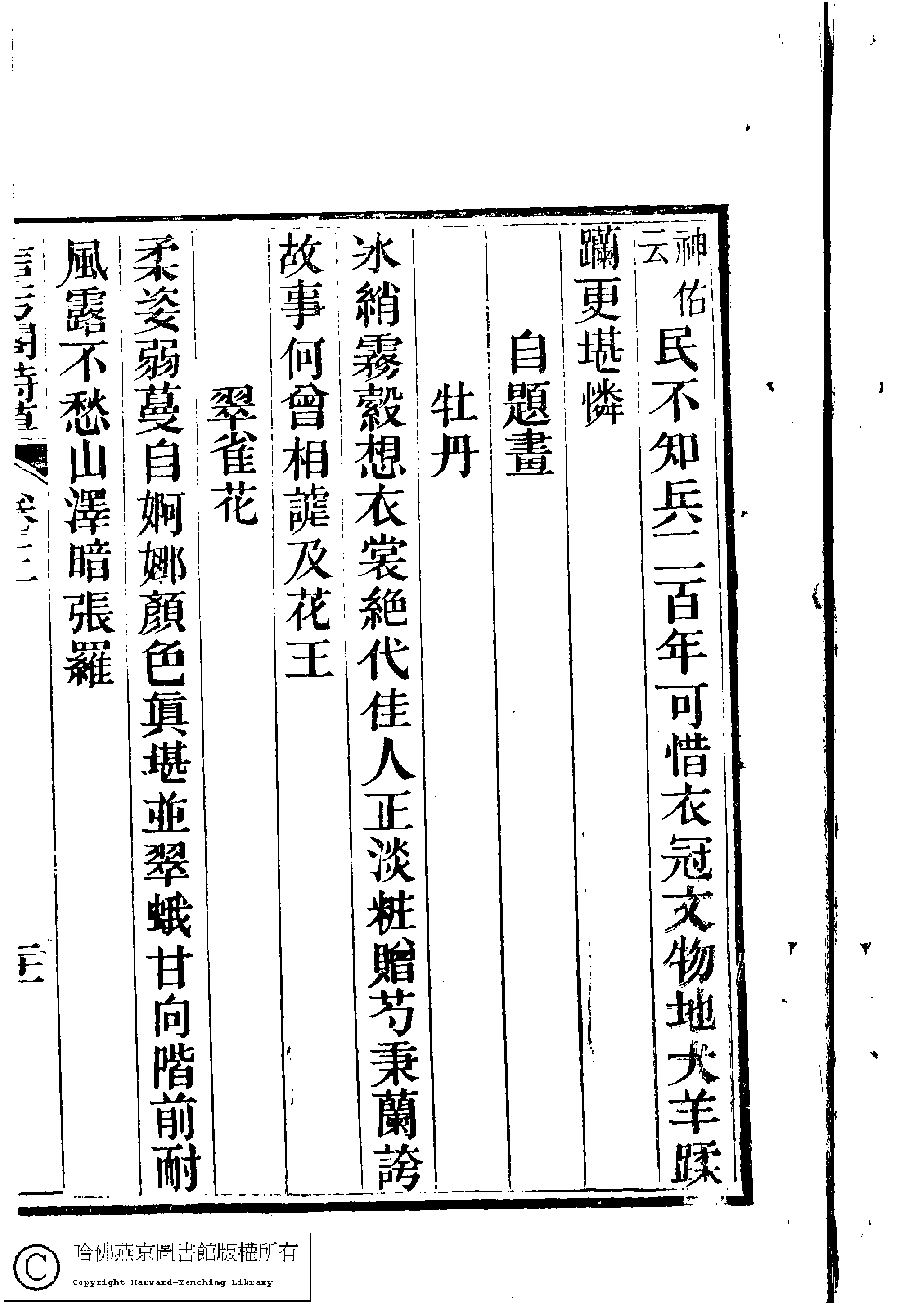 神佑
云
民不知兵二百年可惜衣冠文物地犬羊蹂
躪更堪憐
自題畫
牡丹
冰綃霧縠想衣裳絕代佳人正淡粧贈芍秉蘭誇
故事何曾相謔及花王
翠雀花
柔姿弱蔓自婀娜顏色眞堪並翠蛾甘向階前耐
風露不愁山澤暗張羅
卷三
三
哈佛燕京圖書館版權所有
Copyright Harvard-Yenching Library